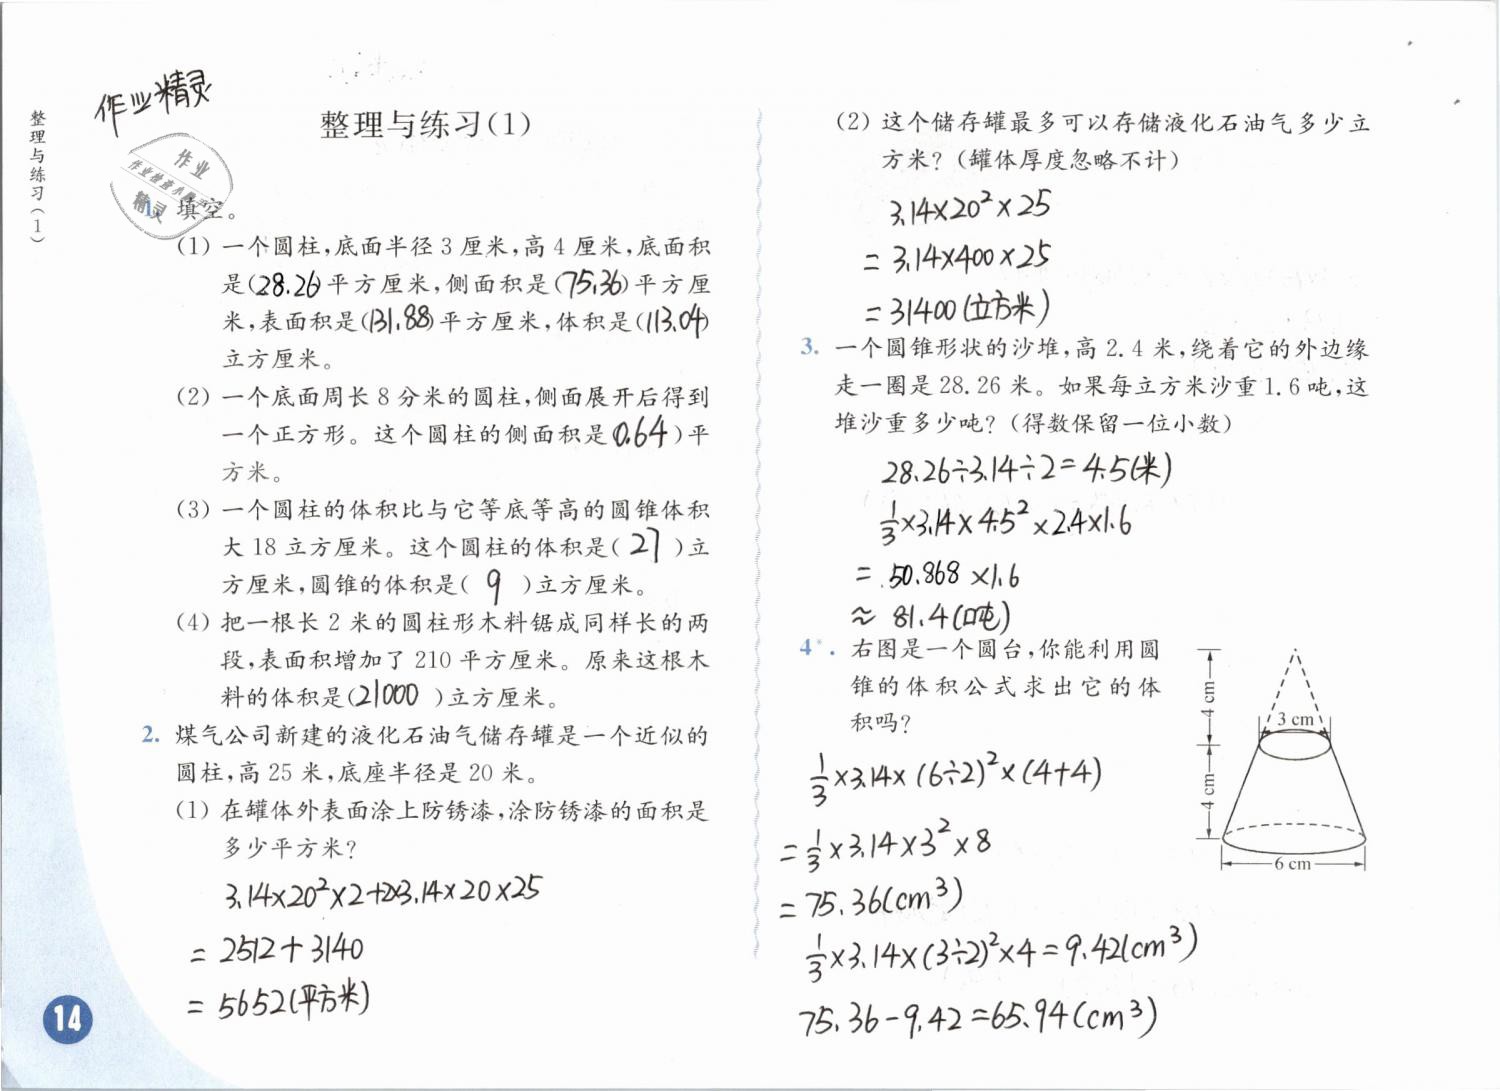 作业精灵
整理与练习(1)
作业
作业检查小
精灵
整理与练习(1)
1. 填空。
(1) 一个圆柱,底面半径 3 厘米,高 4 厘米,底面积
是(28.26)平方厘米,侧面积是(75.36)平方厘
米,表面积是(131.88)平方厘米,体积是(113.04)
立方厘米。
(2) 一个底面周长 8 分米的圆柱,侧面展开后得到
一个正方形。这个圆柱的侧面积是(0.64)平
方米。
(3) 一个圆柱的体积比与它等底等高的圆锥体积
大 18 立方厘米。这个圆柱的体积是( 27 )立
方厘米,圆锥的体积是( 9 )立方厘米。
(4) 把一根长 2 米的圆柱形木料锯成同样长的两
段,表面积增加了 210 平方厘米。原来这根木
料的体积是(21000 )立方厘米。
2. 煤气公司新建的液化石油气储存罐是一个近似的
圆柱,高 25 米,底座半径是 20 米。
(1) 在罐体外表面涂上防锈漆,涂防锈漆的面积是
多少平方米?
3.14×20²×2+2×3.14×20×25
= 2512+3140
= 5652(平方米)
14
(2) 这个储存罐最多可以存储液化石油气多少立
方米?(罐体厚度忽略不计)
3.14×20²×25
= 3.14×400×25
= 31400(立方米)
3. 一个圆锥形状的沙堆,高 2.4 米,绕着它的外边缘
走一圈是 28.26 米。如果每立方米沙重 1.6 吨,这
堆沙重多少吨?(得数保留一位小数)
28.26÷3.14÷2=4.5(米)
1/3×3.14×4.5²×2.4×1.6
= 50.868×1.6
≈ 81.4(吨)
4*. 右图是一个圆台,你能利用圆
锥的体积公式求出它的体
积吗?
4 cm
3 cm
4 cm
6 cm
1/3×3.14×(6÷2)²×(4+4)
=1/3×3.14×3²×8
=75.36(cm³)
1/3×3.14×(3÷2)²×4=9.42(cm³)
75.36-9.42=65.94(cm³)